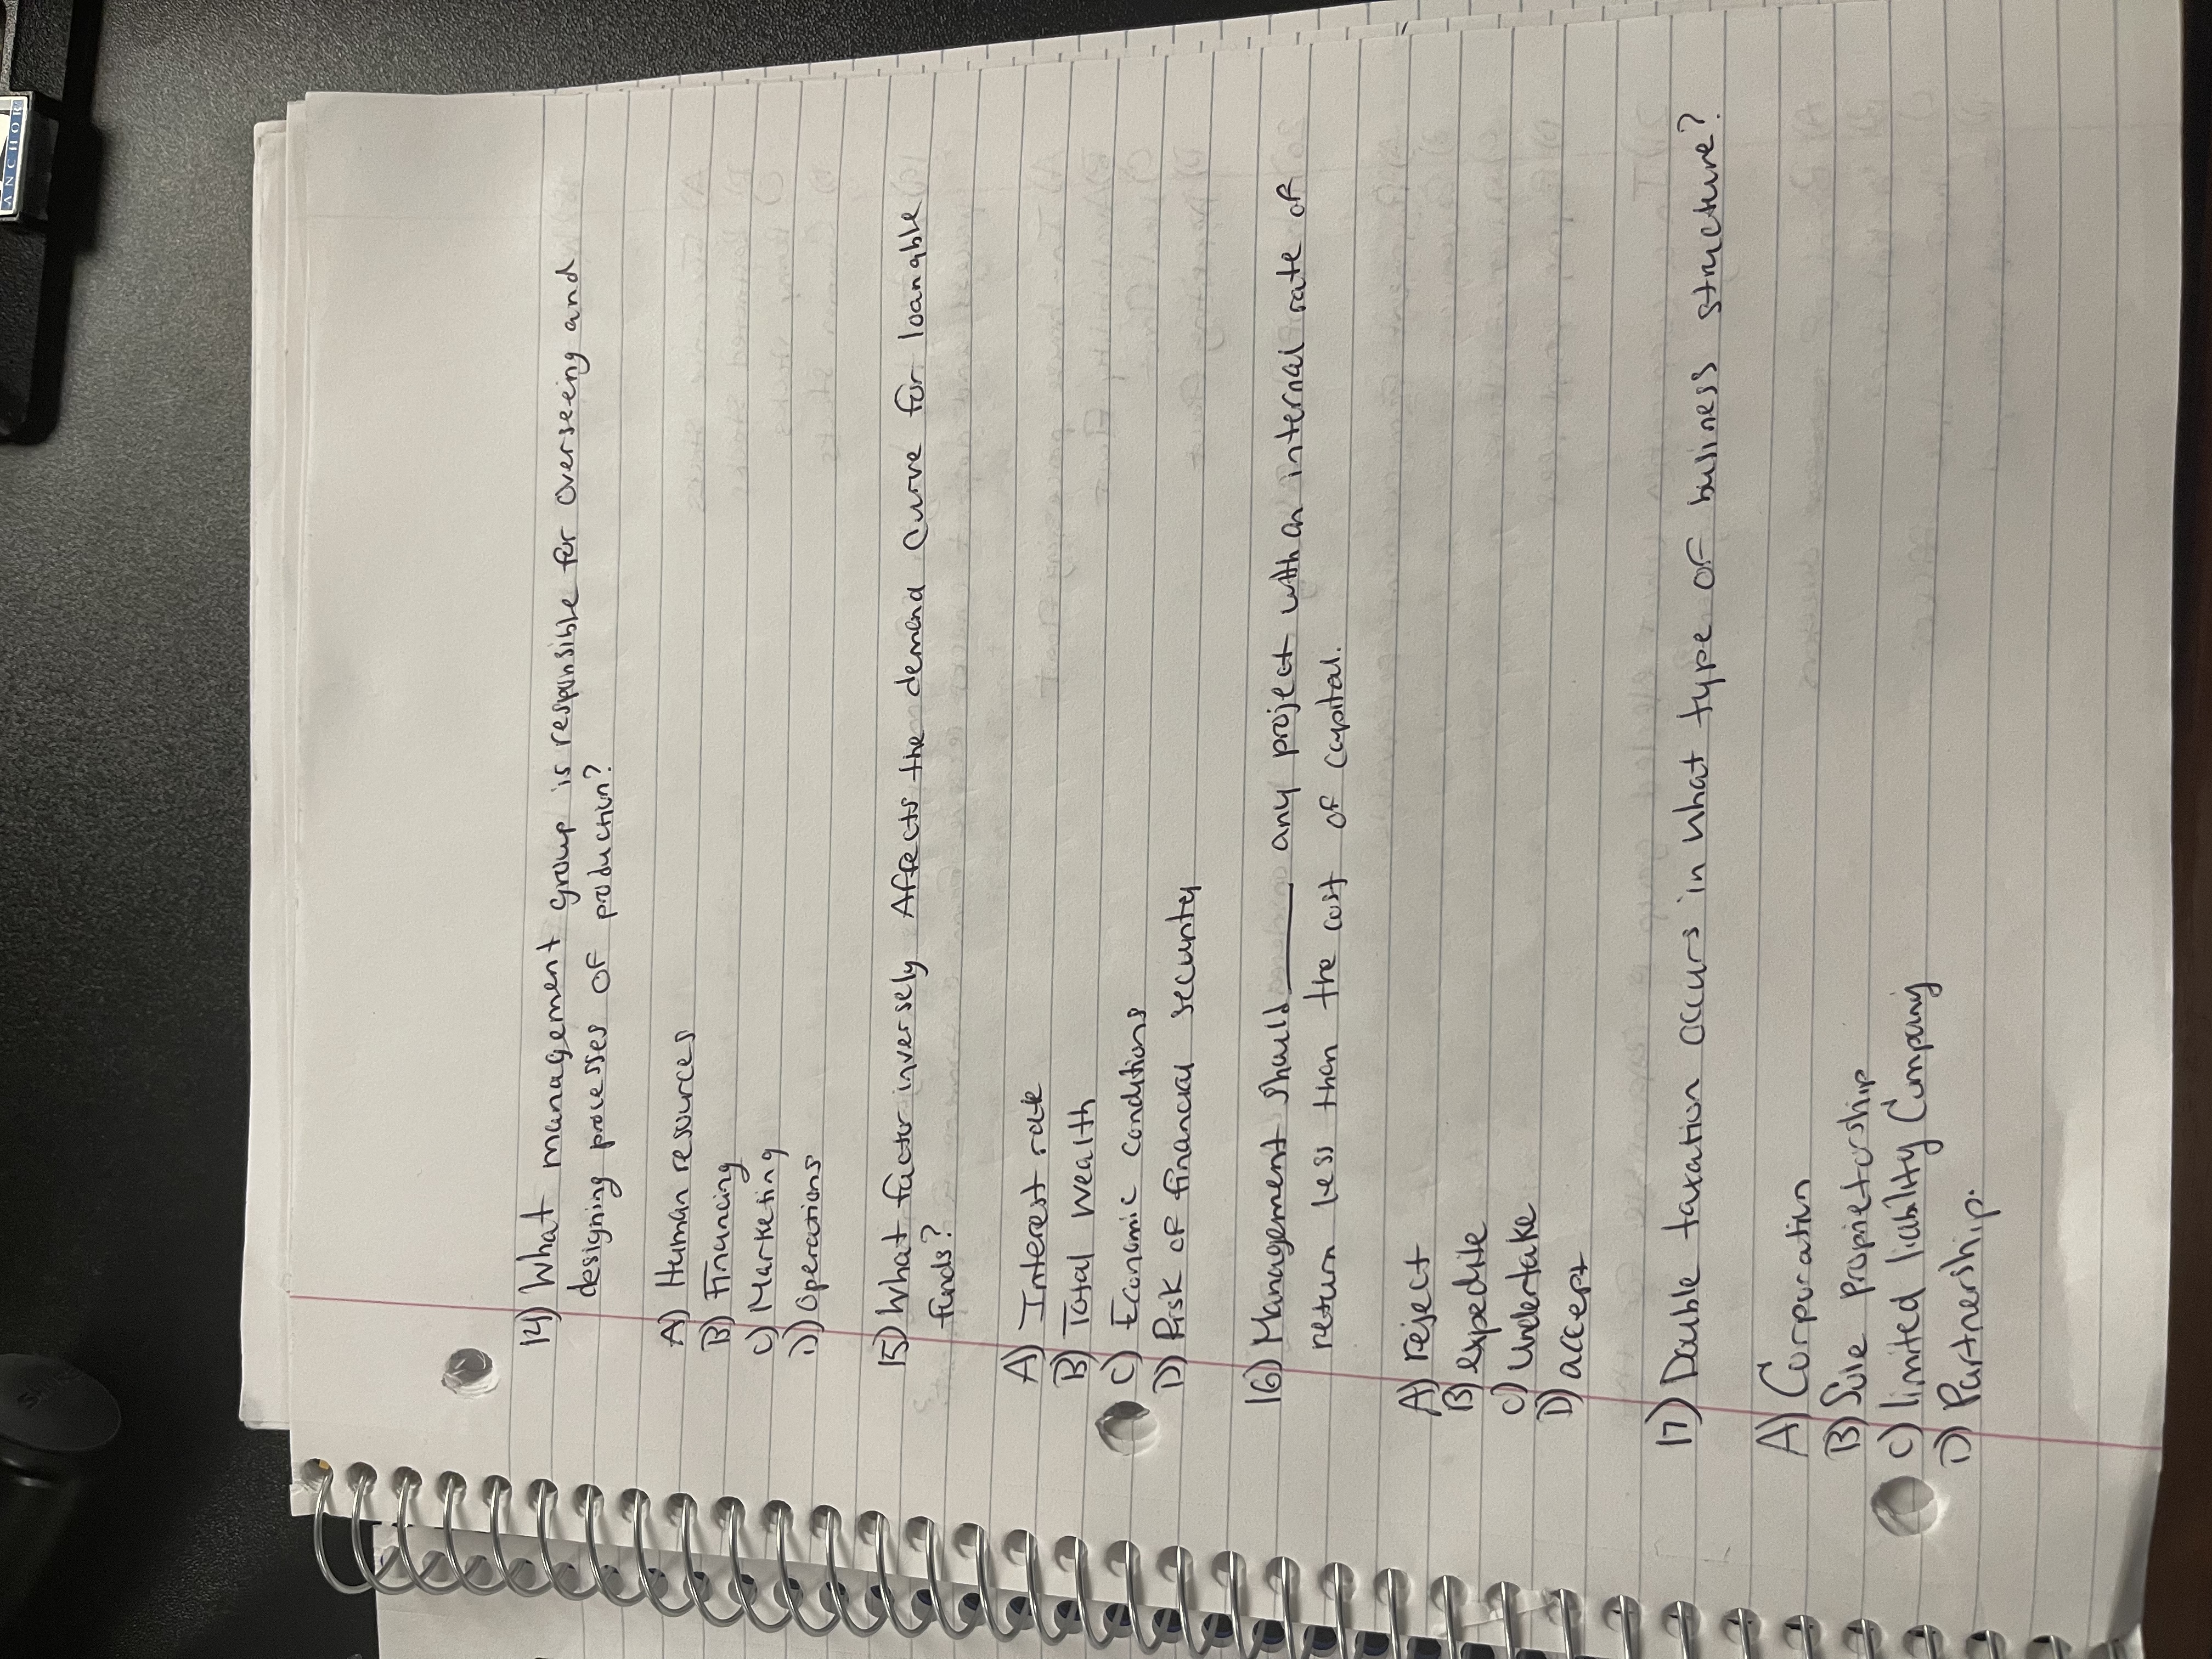 14) What management group is responsible for overseeing and
designing processes of production?
A) Human resources
B) Financing
C) Marketing
D) Operations
15) What factor inversely Affects the demand curve for loanable
funds?
A) Interest rate
B) Total wealth
C) Economic conditions
D) Risk of financial security
16) Management should ______ any project with an internal rate of
return less than the cost of capital.
A) reject
B) expedite
C) undertake
D) accept
17) Double taxation occurs in what type of business structure?
A) Corporation
B) Sole proprietorship
C) limited liability Company
D) Partnership.
ANCHOR